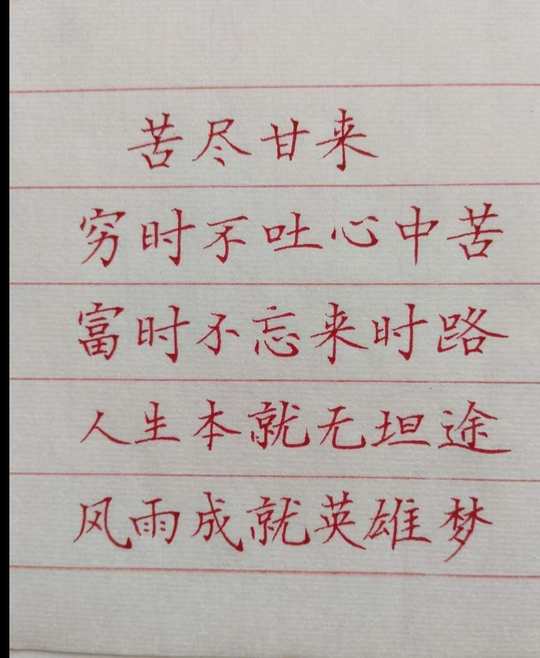 苦尽甘来
穷时不吐心中苦
富时不忘来时路
人生本就无坦途
风雨成就英雄梦